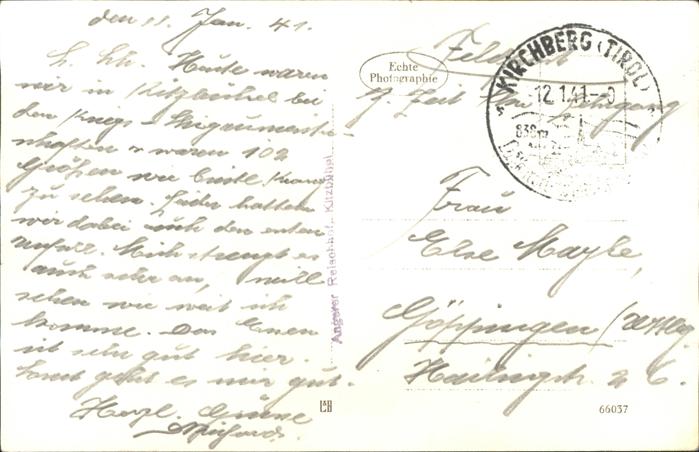 den 11. Jan. 41.
L. Elt. Heute waren
wir in Kitzbühel bei
den Kriegs-Skimeister-
schaften u. waren 102
Größen wie Cristl Kranz
zu sehen. Leider hatten
wir dabei auch den ersten
Unfall. Mich strengt es
auch sehr an, will
sehen wie weit ich
komme. Das Essen
ist sehr gut hier.
Sonst geht es mir gut.
Herzl. Grüsse
Echte
Photographie
Feldpost
z. Zeit im Lehrgang
KIRCHBERG (TIROL)
12.1.41.-0
838m
Frau
Else Mayle,
Göppingen /Wttbg
26.
Angerer Reischhof.. Kitzbühel
66037